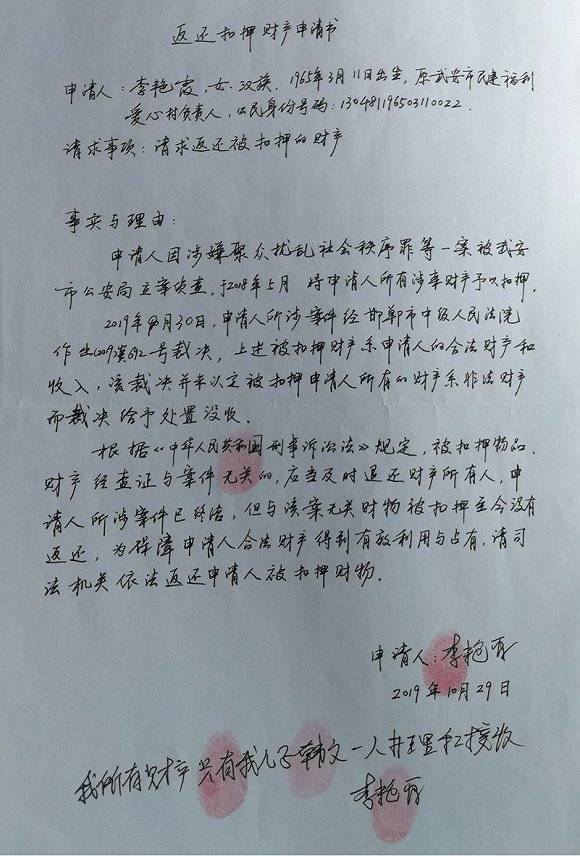 返还扣押财产申请书
申请人：李艳霞，女，汉族，1965年3月11日出生，原武安市民建福利
爱心村负责人，公民身份号码：130481196503110022.
请求事项：请求返还被扣押的财产
事实与理由：
申请人因涉嫌聚众扰乱社会秩序罪等一案被武安
市公安局立案侦查，于2018年5月将申请人所有涉案财产予以扣押。
2019年 月30日，申请人所涉案件经邯郸市中级人民法院
作出 692号裁决，上述被扣押财产系申请人的合法财产和
收入，该裁决并未认定被扣押申请人所有的财产系非法财产
而裁决给予处置没收。
根据《中华人民共和国刑事诉讼法》规定，被扣押物品、
财产经查证与案件无关的，应当及时退还财产所有人，申
请人所涉案件已终结，但与该案无关财物被扣押至今没有
返还，为保障申请人合法财产得到有效利用与占有，请司
法机关依法返还申请人被扣押财物。
申请人：李艳霞
2019年10月29日
我所有财产只有我儿子韩文一人 和接收
李艳霞